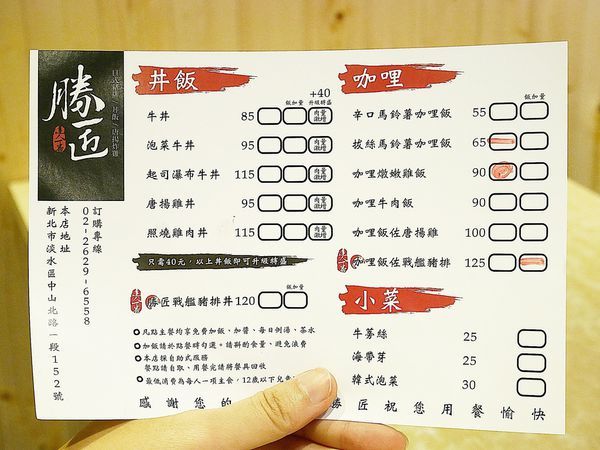 勝匠
日式豬排/丼飯/唐揚炸雞
訂購專線
02-2629-6558
本店地址
新北市淡水區中山北路一段152號
丼飯
+40
飯加量 升級特盛
牛丼 85 肉量激增
泡菜牛丼 95 肉量激增
起司瀑布牛丼 115 肉量激增
唐揚雞丼 95 肉量激增
照燒雞肉丼 115 肉量激增
只需40元,以上丼飯即可升級特盛
飯加量
勝匠戰艦豬排丼 120
凡點主餐均享免費加飯、加醬、每日例湯、茶水
加飯請於點餐時勾選。請斟酌食量、避免浪費
本店採自助式服務
餐點請自取、用餐完請將餐具回收
最低消費為每人一項主食,12歲以下兒
感謝您的
勝匠祝您用餐愉快
咖哩
飯加量
辛口馬鈴薯咖哩飯 55
拔絲馬鈴薯咖哩飯 65
咖哩燉嫩雞飯 90
咖哩牛肉飯 90
咖哩飯佐唐揚雞 100
咖哩飯佐戰艦豬排 125
小菜
牛蒡絲 25
海帶芽 25
韓式泡菜 30